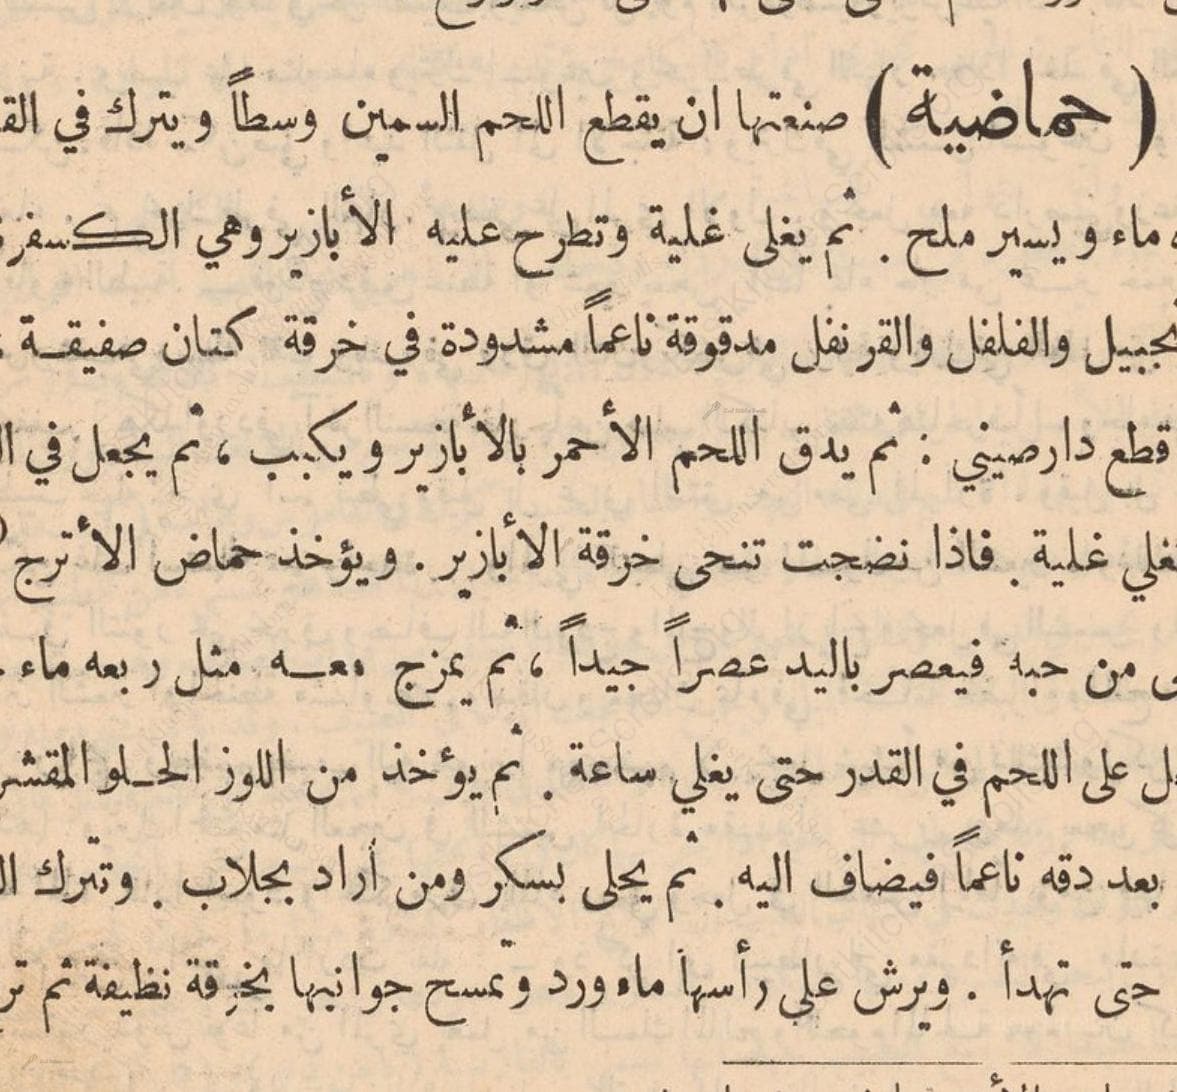 (حماضية) صنعتها ان يقطع اللحم السمين وسطاً ويترك في
ماء ويسير ملح . ثم يغلى غلية وتطرح عليه الأبازير وهي الكسفرة
والفلفل والقرنفل مدقوقة ناعماً مشدودة في خرقة كتان صفيقة
قطع دارصيني : ثم يدق اللحم الأحمر بالأبازير ويكبب ، ثم يجعل في
غلية . فاذا نضجت تنحى خرقة الأبازير . ويؤخذ حماض الأترج
من حبه فيعصر باليد عصراً جيداً ، ثم يمزج معه مثل ربعه ماء
على اللحم في القدر حتى يغلي ساعة . ثم يؤخذ من اللوز الحلو المقشر
بعد دقه ناعماً فيضاف اليه . ثم يحلى بسكر ومن أراد بجلاب . وتترك
حتى تهدأ . ويرش على رأسها ماء ورد وتمسح جوانبها بخرقة نظيفة ثم